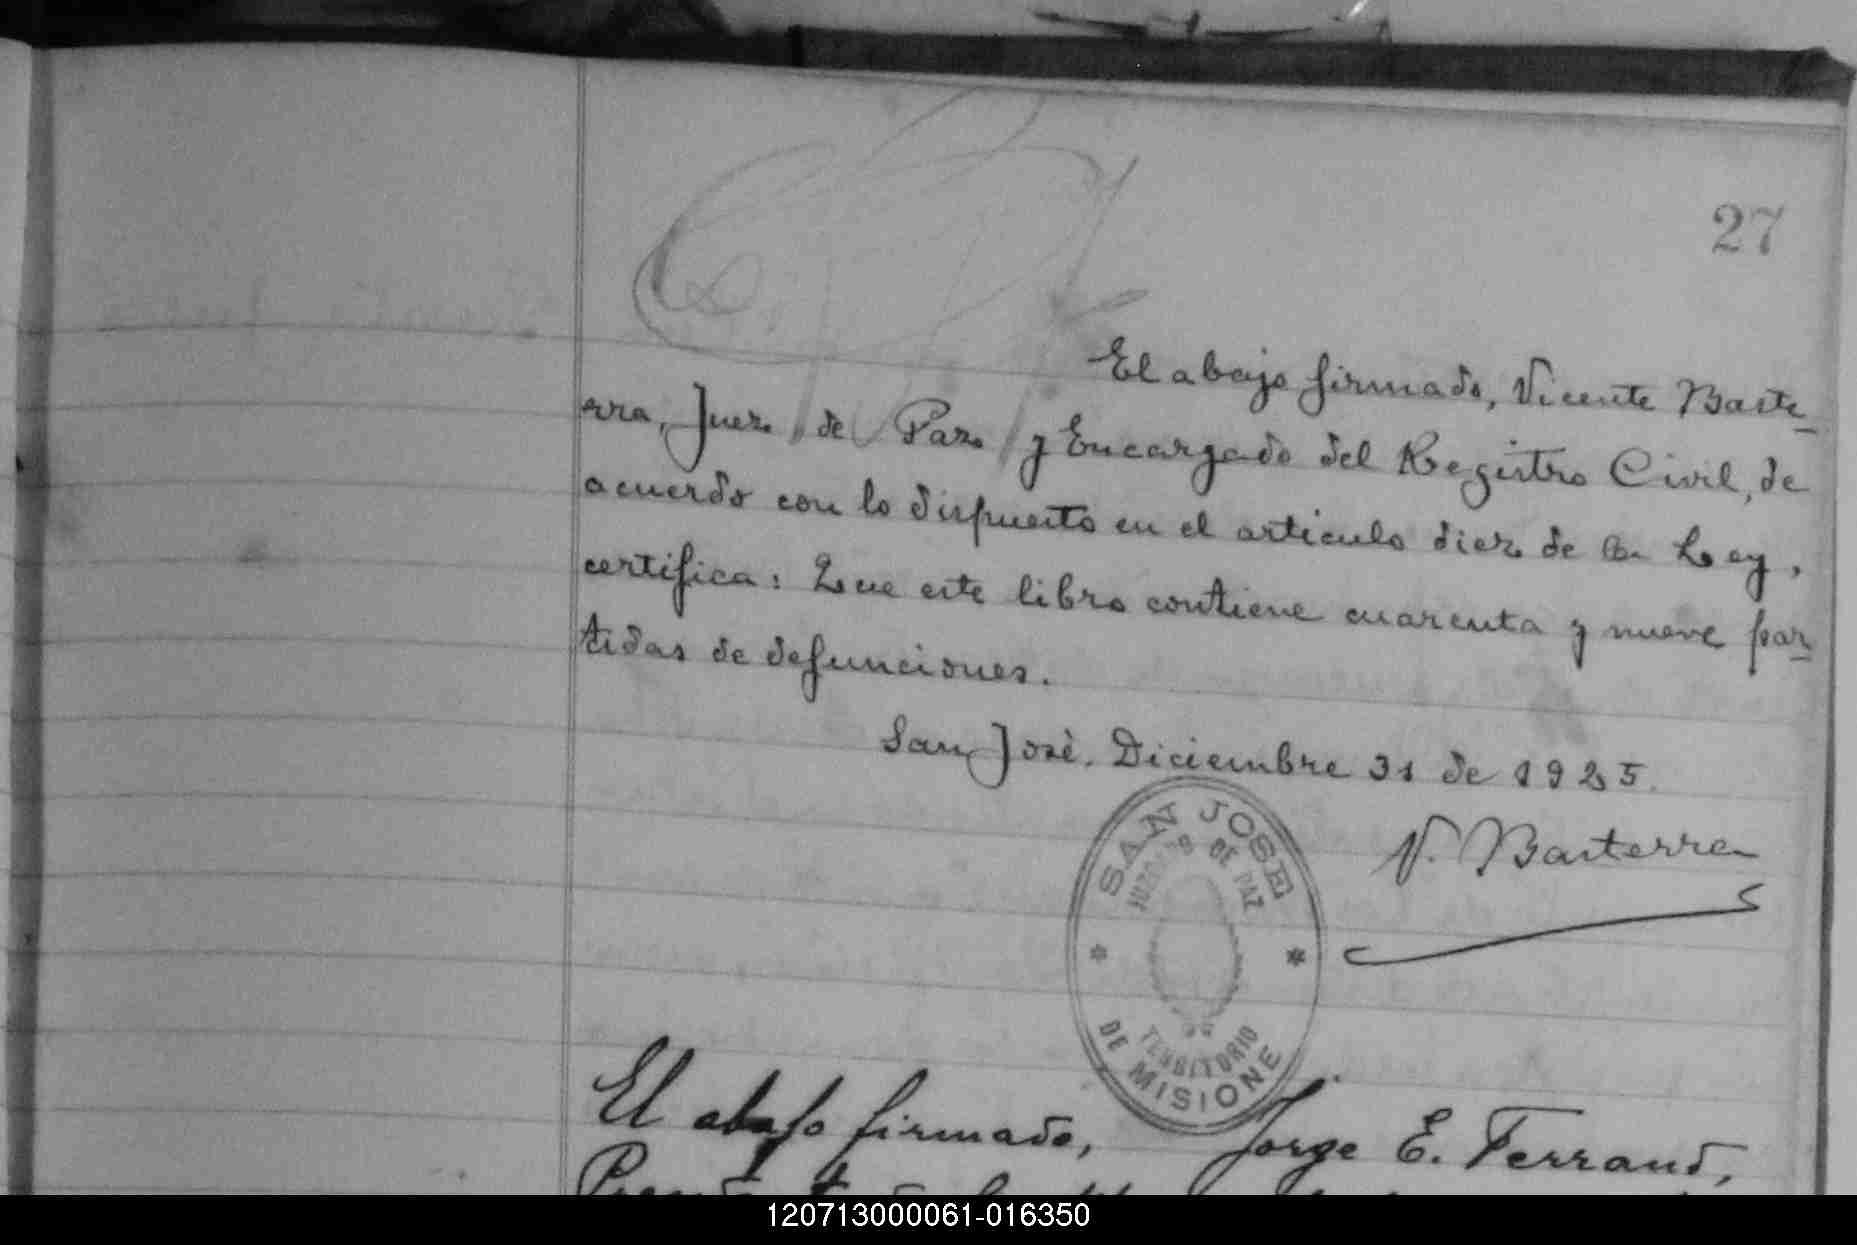 27
El abajo firmado, Vicente Baste-
rra, Juez de Paz y Encargado del Registro Civil, de
acuerdo con lo dispuesto en el articulo diez de la Ley,
certifica: Que este libro contiene cuarenta y nueve par-
tidas de defunciones.
San José, Diciembre 31 de 1925.
V. Basterra
SAN JOSE
JUZGADO DE PAZ
* *
TERRITORIO
DE MISIONE
El abajo firmado, Jorge E. Ferrand,
120713000061-016350